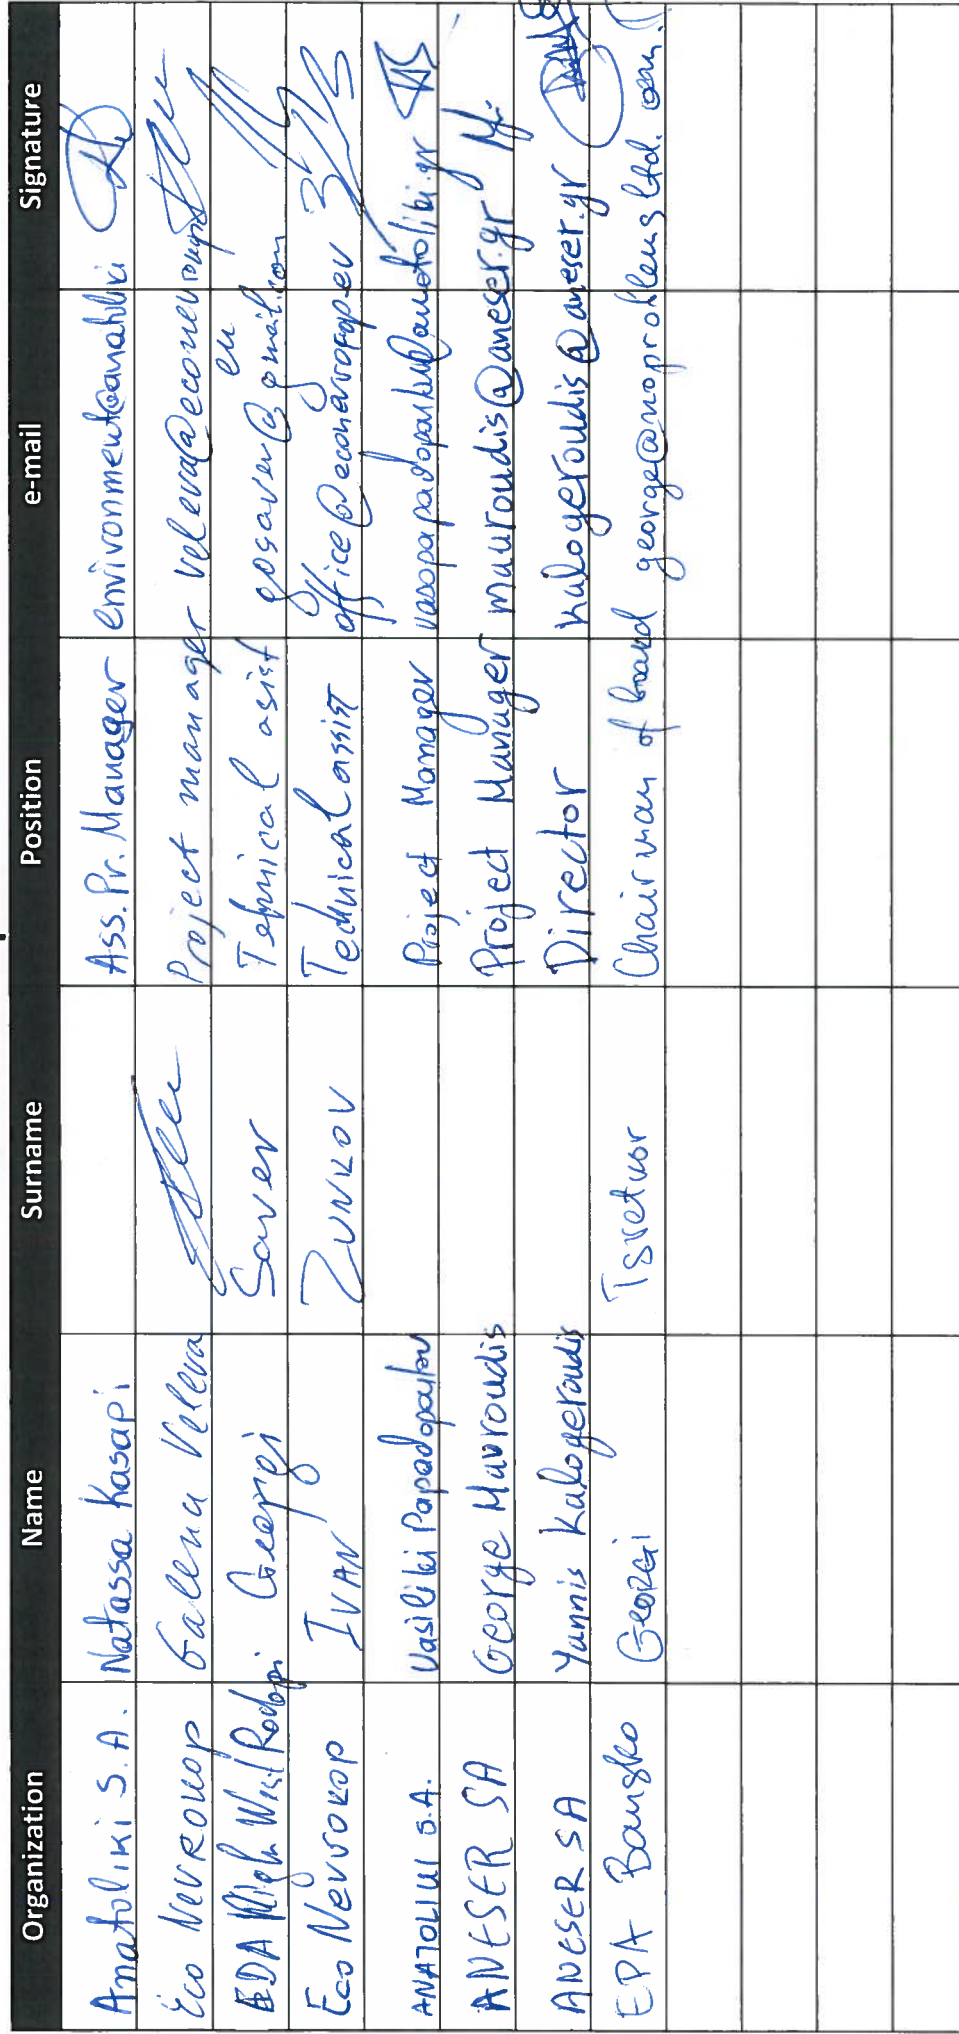 Organization Name Surname Position e-mail Signature
Anatoliki S.A. Natassa Kasapi Ass. Pr. Manager environment@anatoliki
Eco Nevrokop Galena Veleva Project manager veleva@econevrokop
eu
EDA High West Rodopi Georgi Savev Tehnical asist gosavev@gmail.com
Eco Nevrokop IVAN ZUNKOV Technical assist office@econevrokop.eu
ANATOLIKI S.A. Vasiliki Papadopoulou Project Manager @anatoliki.gr
ANESER SA George Mavroudis Project Manager mauroudis@aneser.gr
ANESER SA Yannis Kalogeroudis Director kalogeroudis@aneser.gr
EPA Bansko Georgi Tsvetkov Chairman of board george@noproblemsltd.com